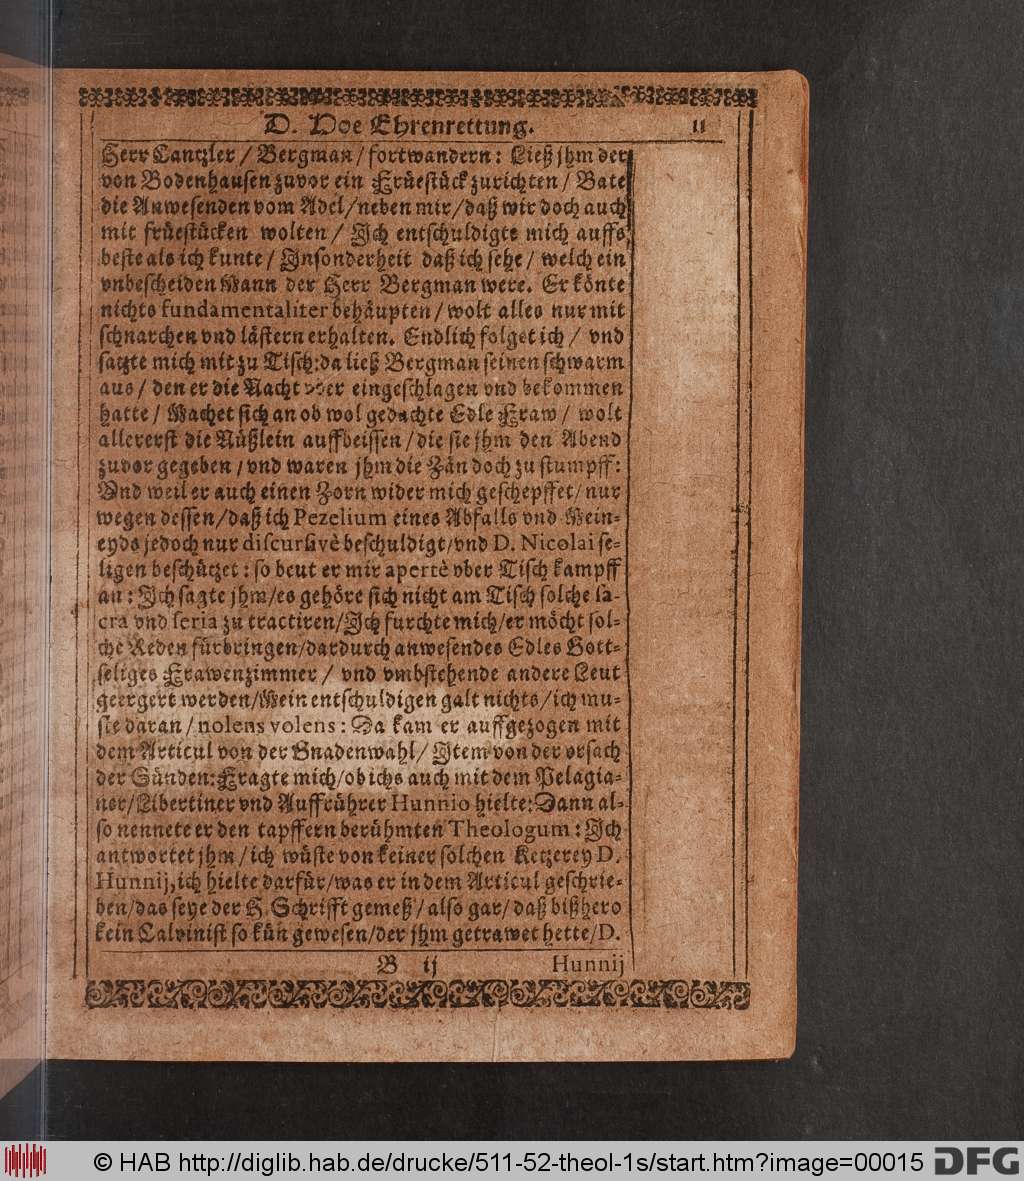 D. Hoe Ehrenrettung. 11
Herr Cantzler / Bergman / fortwandern: Ließ jhm der
von Bodenhausen zuvor ein Früestück zurichten / Bate
die Anwesenden vom Adel / neben mir / daß wir doch auch
mit früestücken wolten / Ich entschuldigte mich auffs
beste als ich kunte / Insonderheit daß ich sehe / welch ein
vnbescheiden Mann der Herr Bergman were. Er könte
nichts fundamentaliter behäupten / wolt alles nur mit
schnarchen vnd lästern erhalten. Endlich folget ich / vnd
satzte mich mit zu Tisch: da ließ Bergman seinen schwarm
aus / den er die Nacht vber eingeschlagen vnd bekommen
hatte / Machet sich an ob wol gedachte Edle Fraw / wolt
allererst die Nüßlein auffbeissen / die sie jhm den Abend
zuvor gegeben / vnd waren jhm die Zän doch zu stumpff:
Vnd weil er auch einen Zorn wider mich geschepffet / nur
wegen dessen / daß ich Pezelium eines Abfalls vnd Mein-
eyds jedoch nur discursivè beschuldigt / vnd D. Nicolai se-
ligen beschützet: so beut er mir apertè vber Tisch kampff
an: Ich sagte jhm / es gehöre sich nicht am Tisch solche sa-
cra vnd seria zu tractiren / Ich furchte mich / er möcht sol-
che Reden fürbringen / dardurch anwesendes Edles Gott-
seliges Frawenzimmer / vnd vmbstehende andere Leut
geergert werden / Mein entschuldigen galt nichts / ich mu-
ste daran / nolens volens: Da kam er auffgezogen mit
dem Articul von der Gnadenwahl / Item von der vrsach
der Sünden: Fragte mich / ob ichs auch mit dem Pelagia-
ner / Libertiner vnd Auffrührer Hunnio hielte: Dann al-
so nennete er den tapffern berühmten Theologum: Ich
antwortet jhm / ich wüste von keiner solchen Ketzerey D.
Hunnij, ich hielte darfür / was er in dem Articul geschrie-
ben / das seye der H. Schrifft gemeß / also gar / daß bißhero
kein Calvinist so kün gewesen / der jhm getrawet hette / D.
B ij Hunnij
© HAB http://diglib.hab.de/drucke/511-52-theol-1s/start.htm?image=00015 DFG